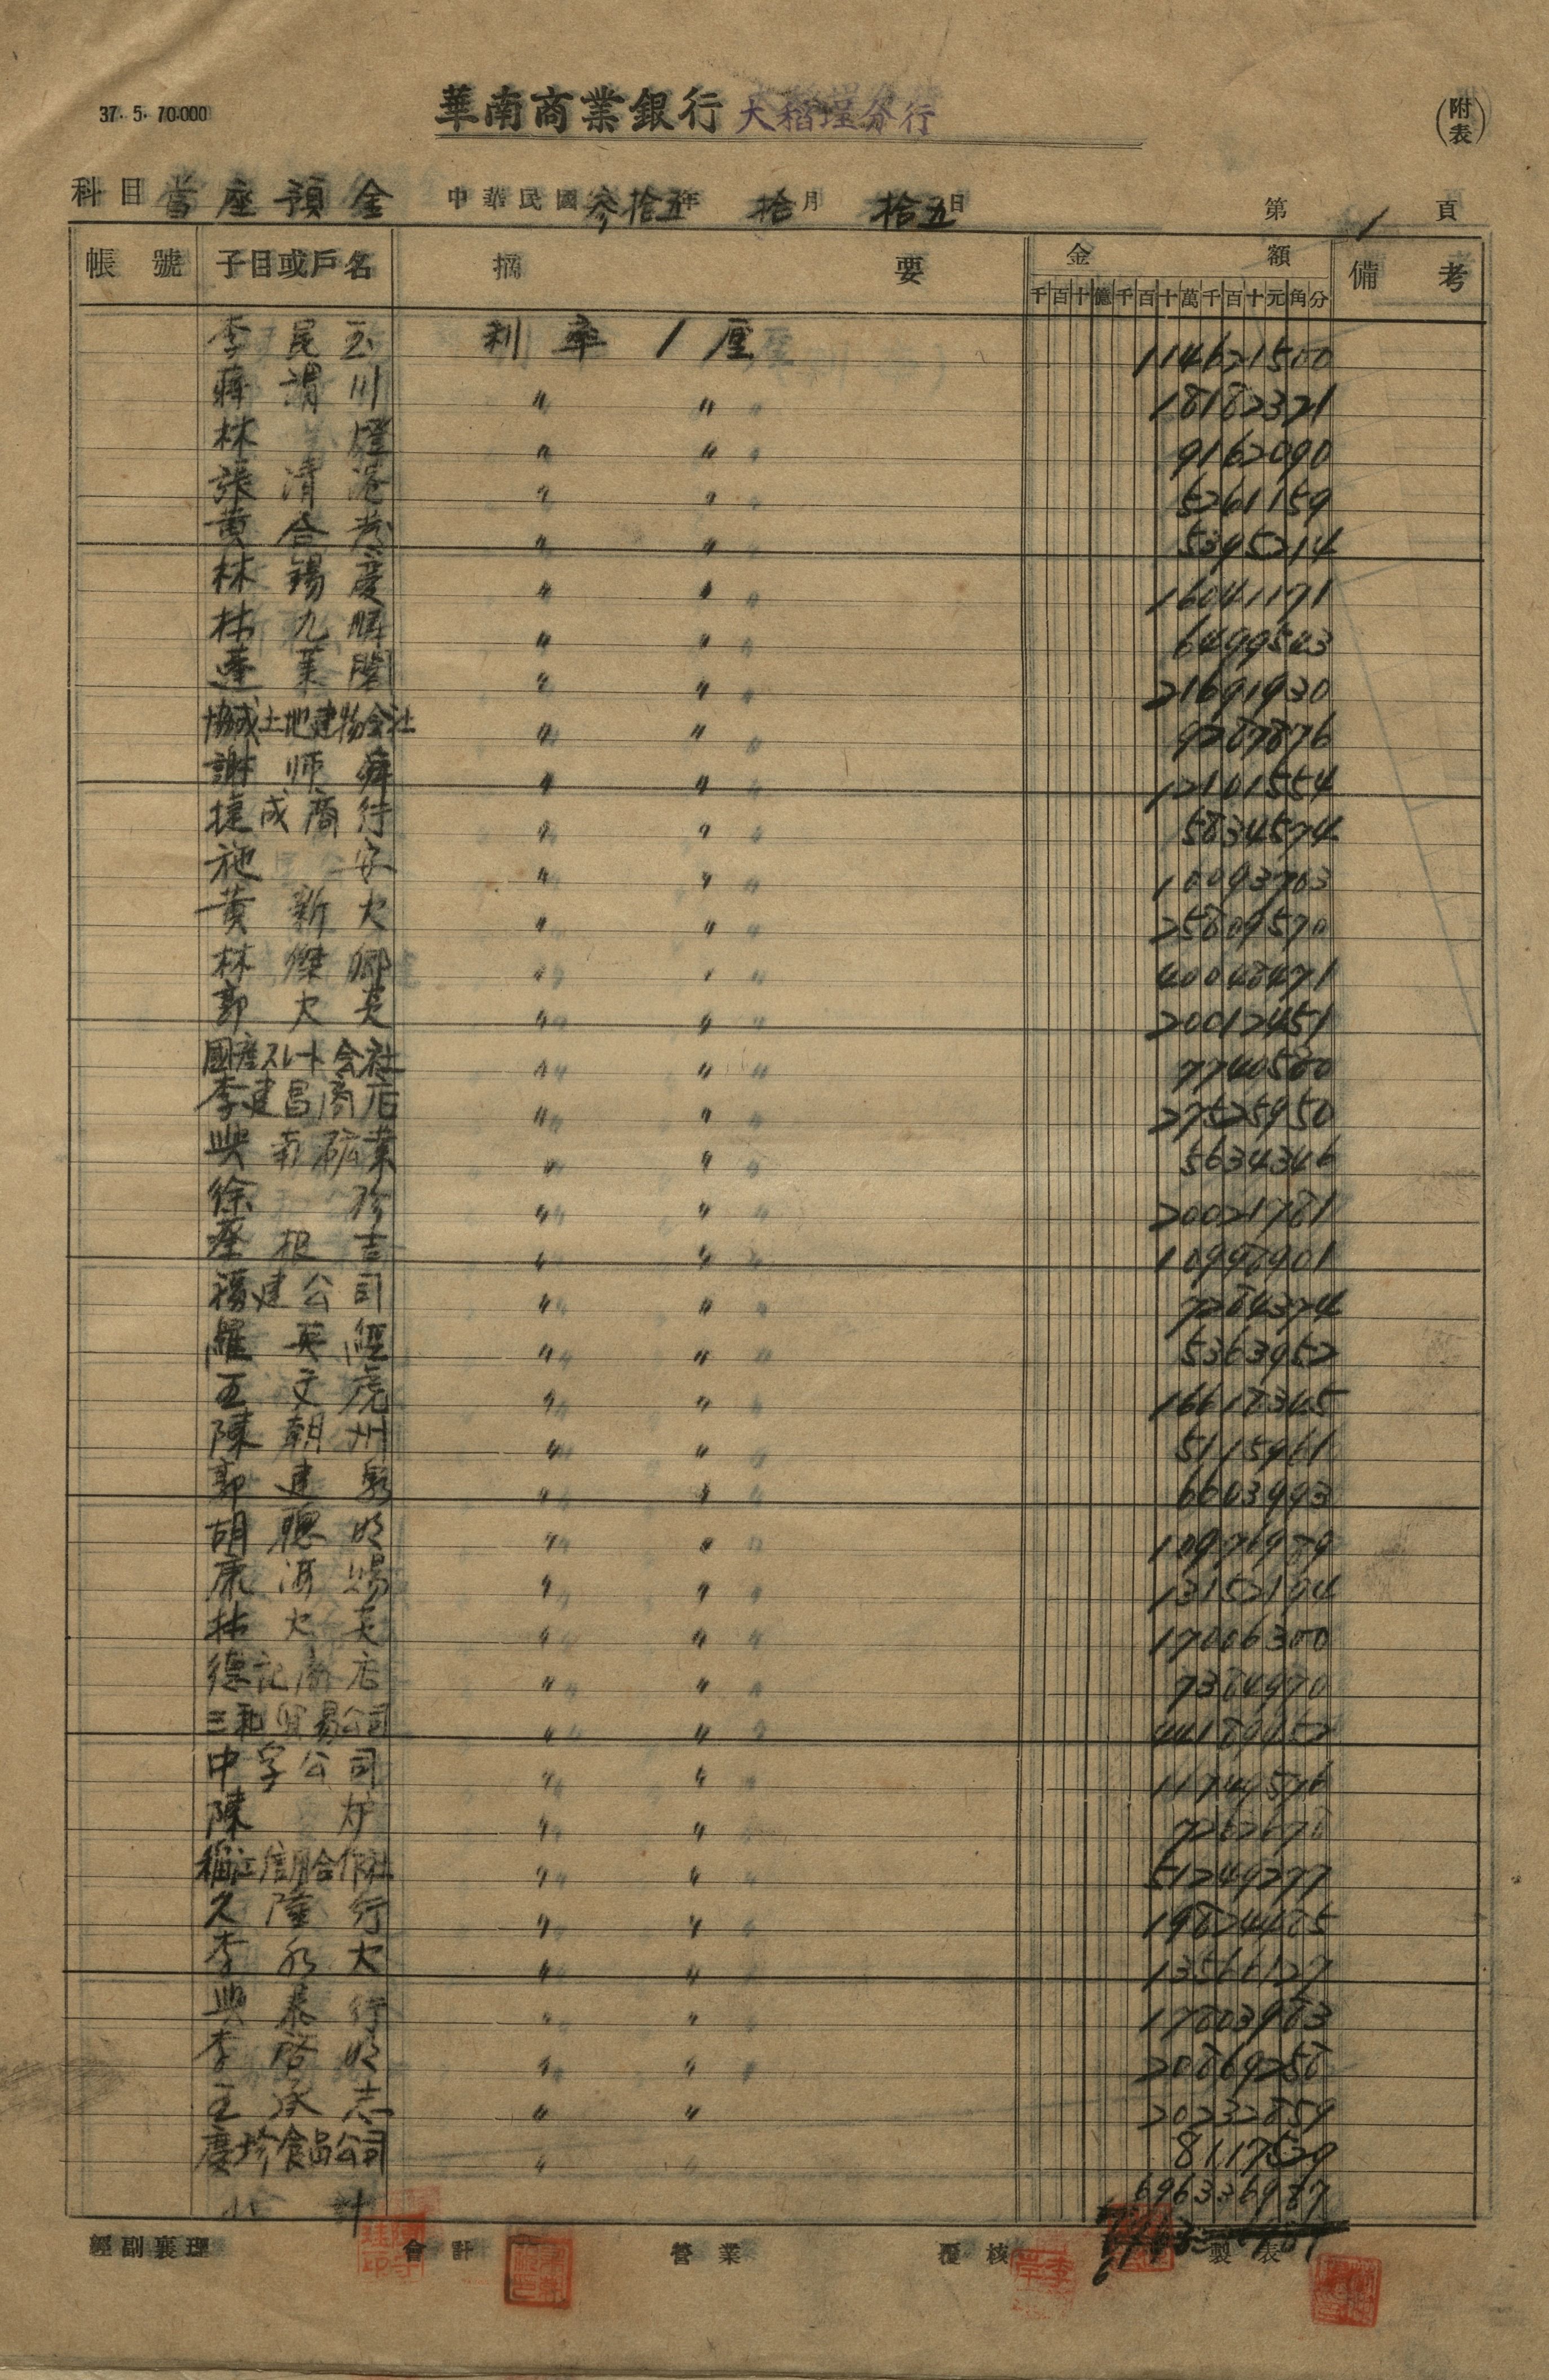 37. 5. 70.000
華南商業銀行 大稻埕分行
(附表)
科目 當座預金 中華民國參拾五年 拾月 拾五日 第 1 頁
帳號 子目或戶名 摘要 金額 備考
千百十億千百十萬千百十元角分
李昆玉 利率1厘 114621500
蔣渭川 〃 〃 18182321
林 燈 〃 〃 9162090
張清港 〃 〃 5261159
黃合發 〃 〃 5395214
林錫慶 〃 〃 16041171
林九勝 〃 〃 6499543
蓬萊閣 〃 〃 21691930
協成土地建物会社 〃 〃 9287876
謝師舜 〃 〃 12101554
捷成商行 〃 〃 5834574
施 安 〃 〃 10093703
黃新火 〃 〃 25809570
林傑卿 〃 〃 40048471
郭火英 〃 〃 20012451
國產スレート会社 〃 〃 7740580
李建昌商店 〃 〃 27525950
興南礦業 〃 〃 5634346
徐 珍 〃 〃 20021781
根吉 〃 〃 10998901
福建公司 〃 〃 7284374
羅英經 〃 〃 5363952
王文虎 〃 〃 16618345
陳朝州 〃 〃 5115961
郭建 〃 〃 6643993
胡聰明 〃 〃 10976989
康海賜 〃 〃 13152194
林火英 〃 〃 17006300
德記商店 〃 〃 7384970
三和貿易公司 〃 〃 44189952
中孚公司 〃 〃 11749576
陳 炉 〃 〃 7262678
稻江信用合作社 〃 〃 51249277
久隆行 〃 〃 19824485
李永火 〃 〃 13566127
興泰行 〃 〃 17803983
李啓明 〃 〃 20869258
王承志 〃 〃 20232859
慶珍食品公司 〃 8117529
計 696336987
經副襄理 會計 營業 覆核 製表